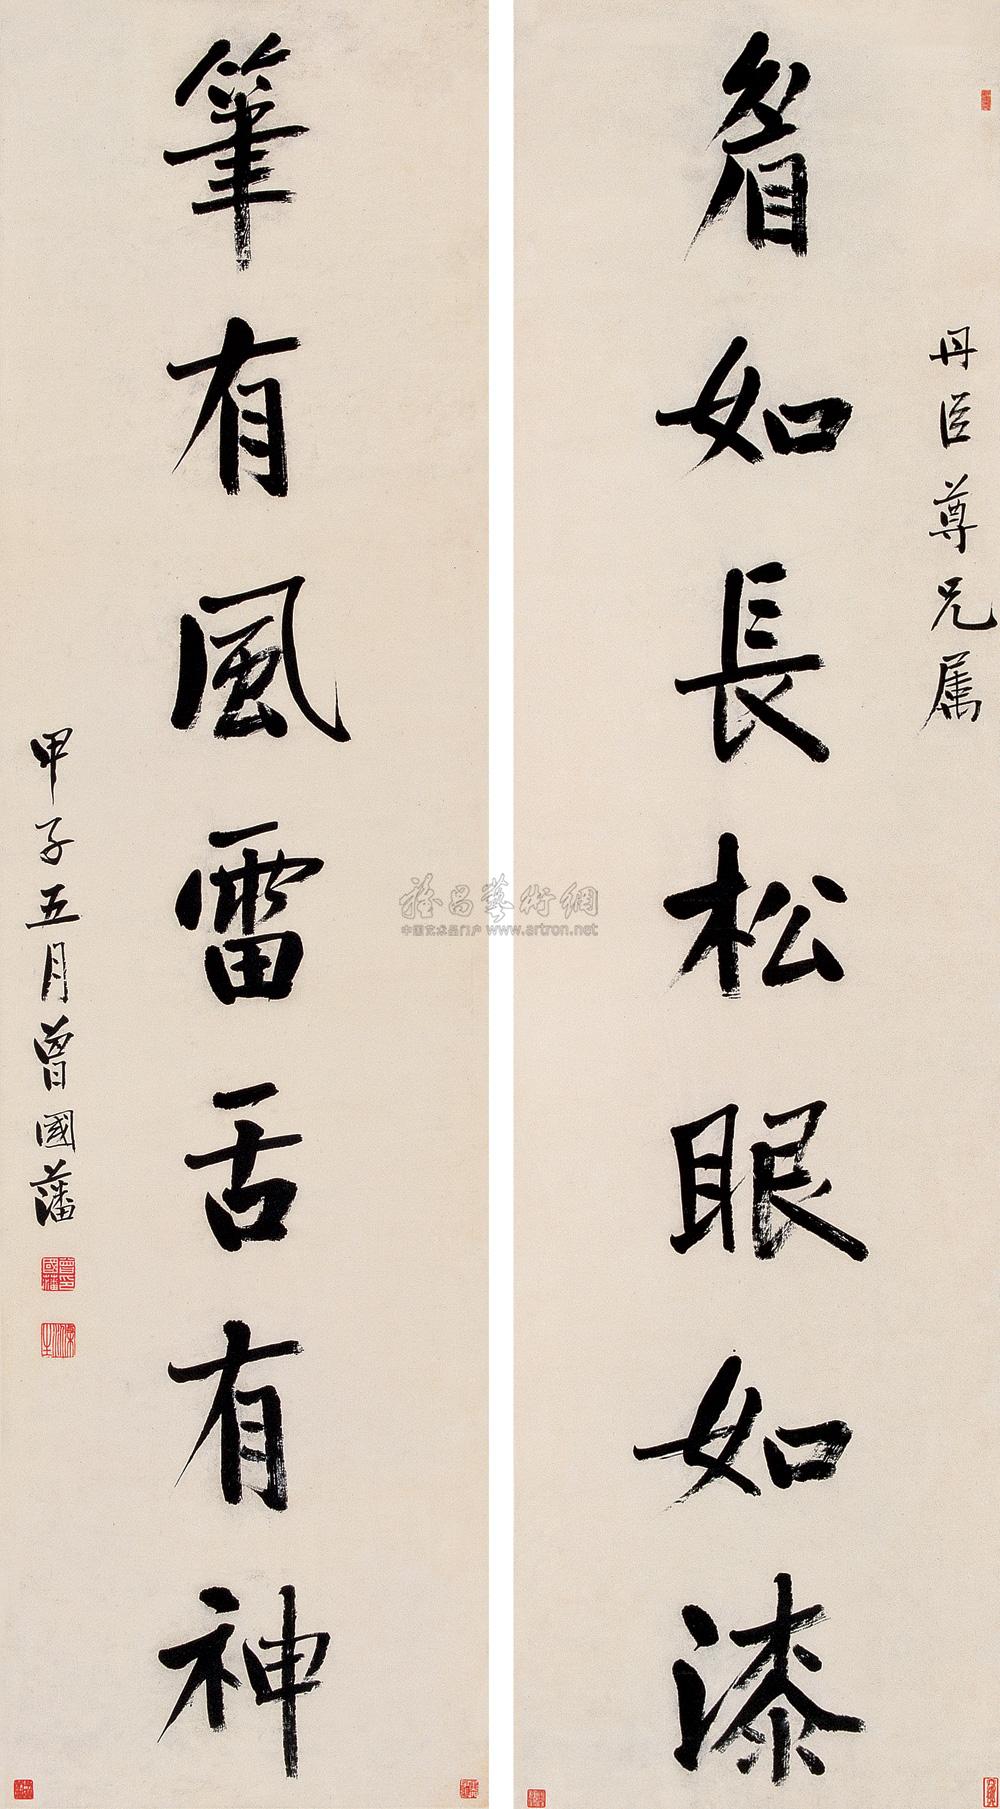 丹臣尊兄属
眉如長松眼如漆
筆有風雷舌有神
甲子五月曾國藩
雅昌藝術網
中国艺术品门户 www.artron.net